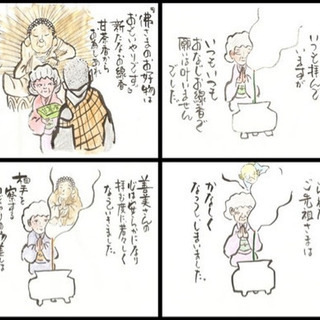 いつも拝んで
いますが
いつもいつも
おなじお線香で
願いは叶いません
でした。
ご先祖さまは
かなしく
なってしまいました。
佛さまのお好物は
おもいやりです
新たなお線香
甘茶香から
心は安らかになり
拝む度に若々しく
なってしまいました。
相手を
察する